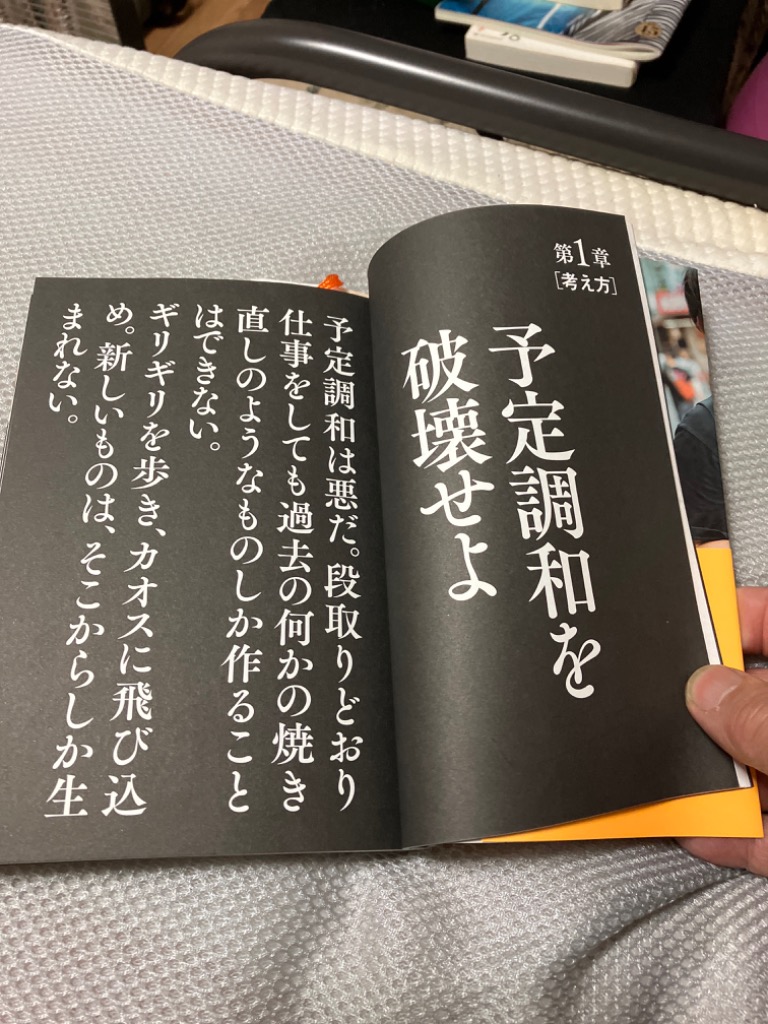 第1章
[考え方]
予定調和を
破壊せよ
予定調和は悪だ。段取りどおり
仕事をしても過去の何かの焼き
直しのようなものしか作ること
はできない。
ギリギリを歩き、カオスに飛び込
め。新しいものは、そこからしか生
まれない。